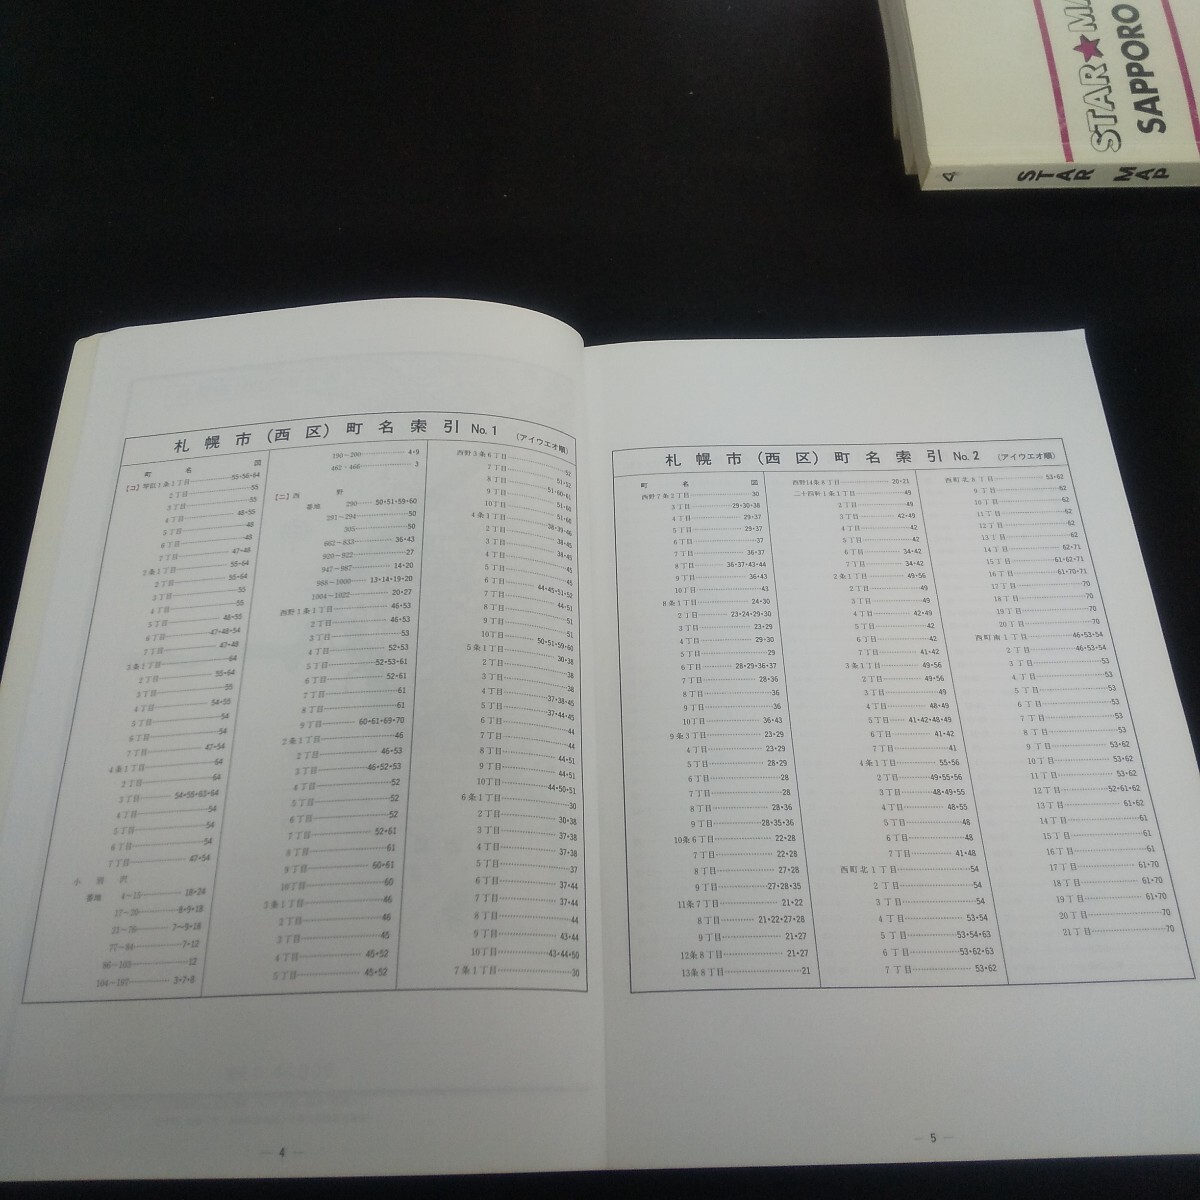 STAR★MA
SAPPORO
4 STAR MAP
札幌市(西区)町名索引 No.1 (アイウエオ順)
町名 図
【コ】琴似1条1丁目 55・56・64
2丁目 55
3丁目 55
4丁目 48・55
5丁目 48
6丁目 48
7丁目 47・48
2条1丁目 55・64
2丁目 55・64
3丁目 55
4丁目 55
5丁目 48・55
6丁目 47・48・54
7丁目 47・48
3条1丁目 64
2丁目 55・64
3丁目 55
4丁目 54・55
5丁目 54
6丁目 54
7丁目 47・54
4条1丁目 64
2丁目 64
3丁目 54・55・63・64
4丁目 54
5丁目 54
6丁目 54
7丁目 47・54
小別沢
番地 4~15 18・24
77~84 7・12
86~103 12
190~200 4・9
462・466 3
【ニ】西野
番地 290 50・51・59・60
291~294 50
305 50
662~833 36・43
920~922 27
947~987 14・20
988~1000 13・14・19・20
1004~1022 20・27
西野1条1丁目 46・53
2丁目 46・53
3丁目 53
4丁目 52・53
5丁目 52・53・61
6丁目 52・61
7丁目 61
8丁目 61
9丁目 60・61・69・70
2条1丁目 46
2丁目 46・53
3丁目 46・52・53
4丁目 52
5丁目 52
6丁目 52
7丁目 52・61
8丁目 61
9丁目 60・61
10丁目 60
3条1丁目 46
2丁目 46
3丁目 45
4丁目 45・52
5丁目 45・52
西野3条6丁目 52
7丁目 51・52
8丁目 51・52
9丁目 51・60・61
10丁目 51・60
4条1丁目 38・39・46
2丁目 38・45
3丁目 38・45
4丁目 45
5丁目 45
6丁目 44・45・51・52
7丁目 44・51
8丁目 51
9丁目 51
10丁目 50・51・59・60
5条1丁目 30・38
2丁目 38
3丁目 38
4丁目 37・38・45
5丁目 37・44・45
6丁目 44
7丁目 44
8丁目 44・51
9丁目 44・51
10丁目 44・50・51
6条1丁目 30
2丁目 30・38
3丁目 37・38
4丁目 37・38
5丁目 37
6丁目 37・44
7丁目 37・44
8丁目 44
9丁目 43・44
10丁目 43・44・50
7条1丁目 30
— 4 —
札幌市(西区)町名索引 No.2 (アイウエオ順)
町名 図
西野7条2丁目 30
3丁目 29・30・38
4丁目 29・37
5丁目 29・37
6丁目 37
7丁目 36・37
8丁目 36・37・43・44
9丁目 36・43
10丁目 43
8条1丁目 24・30
2丁目 23・24・29・30
3丁目 23・29
4丁目 29・30
5丁目 29
6丁目 28・29・36・37
7丁目 28・36
8丁目 36
9丁目 36
10丁目 36・43
9条3丁目 23・29
4丁目 23・29
5丁目 28・29
6丁目 28
7丁目 28
8丁目 28・36
9丁目 28・35・36
10条6丁目 22・28
7丁目 22・28
8丁目 27・28
9丁目 27・28・35
11条7丁目 21・22
8丁目 21・22・27・28
9丁目 21・27
12条8丁目 21・27
13条8丁目 21
西野14条8丁目 20・21
二十四軒1条1丁目 49
2丁目 49
3丁目 42・49
4丁目 42
5丁目 42
6丁目 34・42
7丁目 34・42
2条1丁目 49・56
2丁目 49
3丁目 49
4丁目 42・49
5丁目 42
6丁目 42
7丁目 41・42
3条1丁目 49・56
2丁目 49・56
3丁目 49
4丁目 48・49
5丁目 41・42・48・49
6丁目 41・42
7丁目 41
4条1丁目 55・56
2丁目 49・55・56
3丁目 48・49・55
4丁目 48・55
5丁目 48
6丁目 48
7丁目 41・48
西町北1丁目 54
2丁目 54
3丁目 54
4丁目 53・54
5丁目 53・54・63
6丁目 53・62・63
7丁目 53・62
西町北8丁目 53・62
9丁目 62
10丁目 62
11丁目 62
12丁目 62
13丁目 62
14丁目 62・71
15丁目 61・62・71
16丁目 61・70・71
17丁目 70
18丁目 70
19丁目 70
20丁目 70
西町南1丁目 46・53・54
2丁目 46・53・54
3丁目 53
4丁目 53
5丁目 53
6丁目 53
7丁目 53
8丁目 53
9丁目 53・62
10丁目 53・62
11丁目 53・62
12丁目 52・61・62
13丁目 61・62
14丁目 61
15丁目 61
16丁目 61
17丁目 61・70
18丁目 61・70
19丁目 61・70
20丁目 70
21丁目 70
— 5 —